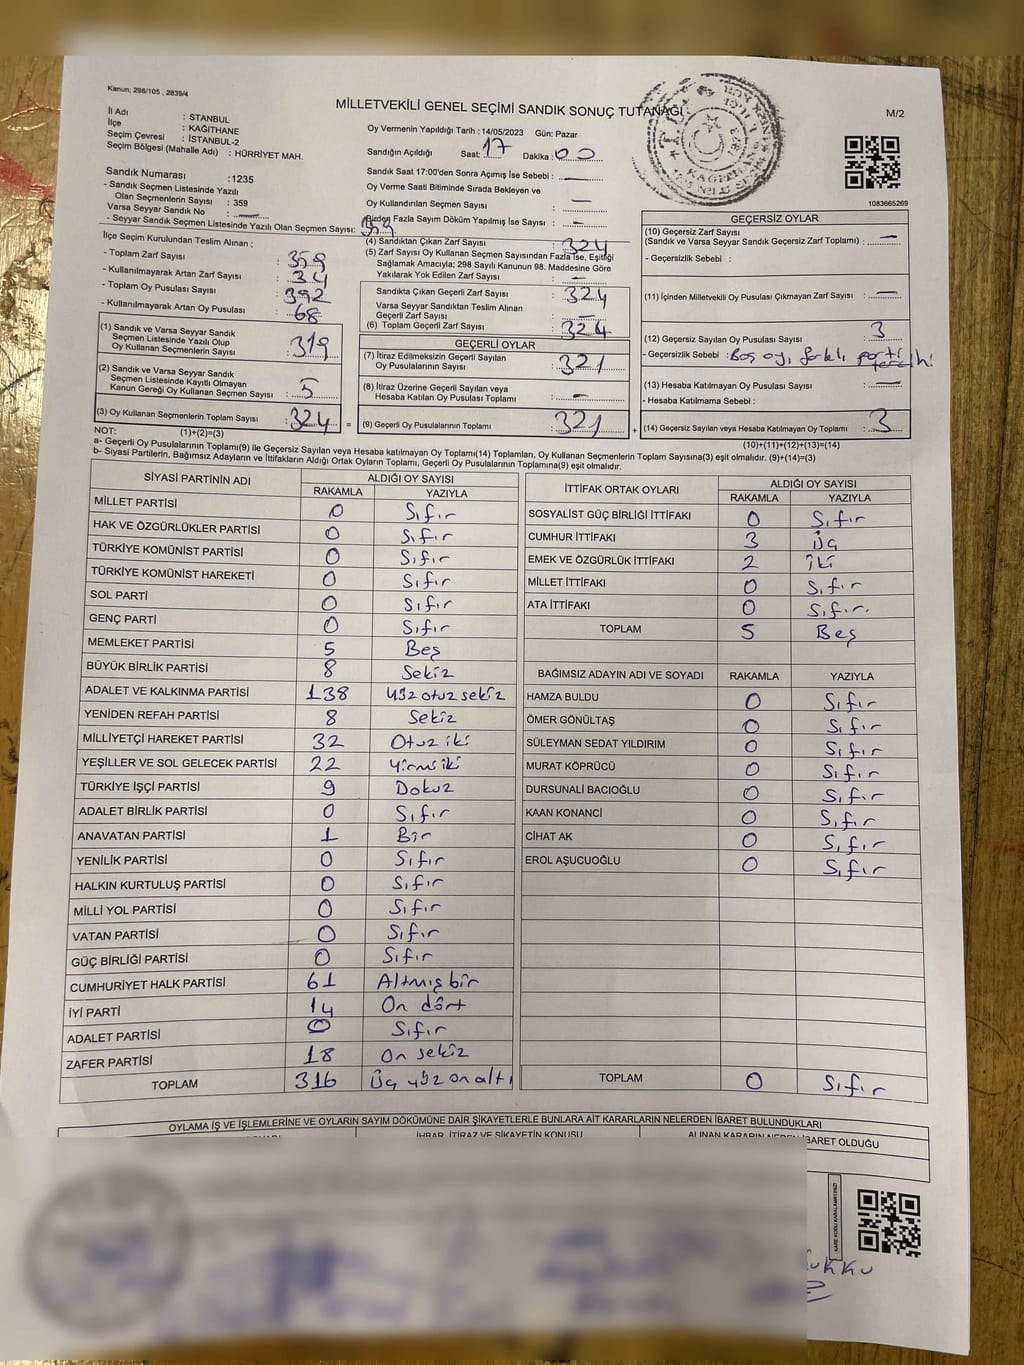 Kanun; 298/105 , 2839/4
MİLLETVEKİLİ GENEL SEÇİMİ SANDIK SONUÇ TUTANAĞI
M/2
İl Adı : STANBUL
İlçe : KAĞITHANE
Seçim Çevresi : İSTANBUL-2
Seçim Bölgesi (Mahalle Adı) : HÜRRİYET MAH.
Sandık Numarası :1235
- Sandık Seçmen Listesinde Yazılı
Olan Seçmenlerin Sayısı : 359
Varsa Seyyar Sandık No :
- Seyyar Sandık Seçmen Listesinde Yazılı Olan Seçmen Sayısı:
Oy Vermenin Yapıldığı Tarih : 14/05/2023 Gün: Pazar
Sandığın Açıldığı Saat: 17 Dakika : 00
Sandık Saat 17:00'den Sonra Açımış İse Sebebi : —
Oy Verme Saati Bitiminde Sırada Bekleyen ve
Oy Kullandırılan Seçmen Sayısı : —
Birden Fazla Sayım Döküm Yapılmış İse Sayısı : —
1083665269
İlçe Seçim Kurulundan Teslim Alınan ;
- Toplam Zarf Sayısı : 359
- Kullanılmayarak Artan Zarf Sayısı : 34
- Toplam Oy Pusulası Sayısı : 392
- Kullanılmayarak Artan Oy Pusulası : 68
(1) Sandık ve Varsa Seyyar Sandık
Seçmen Listesinde Yazılı Olup
Oy Kullanan Seçmenlerin Sayısı : 319
(2) Sandık ve Varsa Seyyar Sandık
Seçmen Listesinde Kayıtlı Olmayan
Kanun Gereği Oy Kullanan Seçmen Sayısı : 5
(3) Oy Kullanan Seçmenlerin Toplam Sayısı : 324
(4) Sandıktan Çıkan Zarf Sayısı : 324
(5) Zarf Sayısı Oy Kullanan Seçmen Sayısından Fazla İse, Eşitliği
Sağlamak Amacıyla; 298 Sayılı Kanunun 98. Maddesine Göre
Yakılarak Yok Edilen Zarf Sayısı : —
Sandıkta Çıkan Geçerli Zarf Sayısı : 324
Varsa Seyyar Sandıktan Teslim Alınan
Geçerli Zarf Sayısı : —
(6) Toplam Geçerli Zarf Sayısı : 324
GEÇERLİ OYLAR
(7) İtiraz Edilmeksizin Geçerli Sayılan
Oy Pusulalarının Sayısı : 321
(8) İtiraz Üzerine Geçerli Sayılan veya
Hesaba Katılan Oy Pusulası Toplamı : —
= (9) Geçerli Oy Pusulalarının Toplamı : 321
GEÇERSİZ OYLAR
(10) Geçersiz Zarf Sayısı
(Sandık ve Varsa Seyyar Sandık Geçersiz Zarf Toplamı) : —
- Geçersizlik Sebebi :
(11) İçinden Milletvekili Oy Pusulası Çıkmayan Zarf Sayısı : —
(12) Geçersiz Sayılan Oy Pusulası Sayısı : 3
- Geçersizlik Sebebi : Boş oy, farklı parti tercihi
(13) Hesaba Katılmayan Oy Pusulası Sayısı : —
- Hesaba Katılmama Sebebi :
+ (14) Geçersiz Sayılan veya Hesaba Katılmayan Oy Toplamı : 3
NOT: (1)+(2)=(3)
(10)+(11)+(12)+(13)=(14)
a- Geçerli Oy Pusulalarının Toplamı(9) ile Geçersiz Sayılan veya Hesaba Katılmayan Oy Toplamı(14) Toplamları, Oy Kullanan Seçmenlerin Toplam Sayısına(3) eşit olmalıdır. (9)+(14)=(3)
b- Siyasi Partilerin, Bağımsız Adayların ve İttifakların Aldığı Ortak Oyların Toplamı, Geçerli Oy Pusulalarının Toplamına(9) eşit olmalıdır.
SİYASİ PARTİNİN ADI ALDIĞI OY SAYISI
RAKAMLA YAZIYLA
MİLLET PARTİSİ 0 Sıfır
HAK VE ÖZGÜRLÜKLER PARTİSİ 0 Sıfır
TÜRKİYE KOMÜNİST PARTİSİ 0 Sıfır
TÜRKİYE KOMÜNİST HAREKETİ 0 Sıfır
SOL PARTİ 0 Sıfır
GENÇ PARTİ 0 Sıfır
MEMLEKET PARTİSİ 5 Beş
BÜYÜK BİRLİK PARTİSİ 8 Sekiz
ADALET VE KALKINMA PARTİSİ 138 Yüz otuz sekiz
YENİDEN REFAH PARTİSİ 8 Sekiz
MİLLİYETÇİ HAREKET PARTİSİ 32 Otuz iki
YEŞİLLER VE SOL GELECEK PARTİSİ 22 Yirmi iki
TÜRKİYE İŞÇİ PARTİSİ 9 Dokuz
ADALET BİRLİK PARTİSİ 0 Sıfır
ANAVATAN PARTİSİ 1 Bir
YENİLİK PARTİSİ 0 Sıfır
HALKIN KURTULUŞ PARTİSİ 0 Sıfır
MİLLİ YOL PARTİSİ 0 Sıfır
VATAN PARTİSİ 0 Sıfır
GÜÇ BİRLİĞİ PARTİSİ 0 Sıfır
CUMHURİYET HALK PARTİSİ 61 Altmış bir
İYİ PARTİ 14 On dört
ADALET PARTİSİ 0 Sıfır
ZAFER PARTİSİ 18 On sekiz
TOPLAM 316 Üç yüz on altı
İTTİFAK ORTAK OYLARI ALDIĞI OY SAYISI
RAKAMLA YAZIYLA
SOSYALİST GÜÇ BİRLİĞİ İTTİFAKI 0 Sıfır
CUMHUR İTTİFAKI 3 Üç
EMEK VE ÖZGÜRLÜK İTTİFAKI 2 İki
MİLLET İTTİFAKI 0 Sıfır
ATA İTTİFAKI 0 Sıfır.
TOPLAM 5 Beş
BAĞIMSIZ ADAYIN ADI VE SOYADI RAKAMLA YAZIYLA
HAMZA BULDU 0 Sıfır
ÖMER GÖNÜLTAŞ 0 Sıfır
SÜLEYMAN SEDAT YILDIRIM 0 Sıfır
MURAT KÖPRÜCÜ 0 Sıfır
DURSUNALİ BACIOĞLU 0 Sıfır
KAAN KONANCİ 0 Sıfır
CİHAT AK 0 Sıfır
EROL AŞUCUOĞLU 0 Sıfır
TOPLAM 0 Sıfır
OYLAMA İŞ VE İŞLEMLERİNE VE OYLARIN SAYIM DÖKÜMÜNE DAİR ŞİKAYETLERLE BUNLARA AİT KARARLARIN NELERDEN İBARET BULUNDUKLARI
İHBAR, İTİRAZ VE ŞİKAYETİN KONUSU
ALINAN KARARIN NEDEN İBARET OLDUĞU
KARE KODU KARALAMAYINIZ!